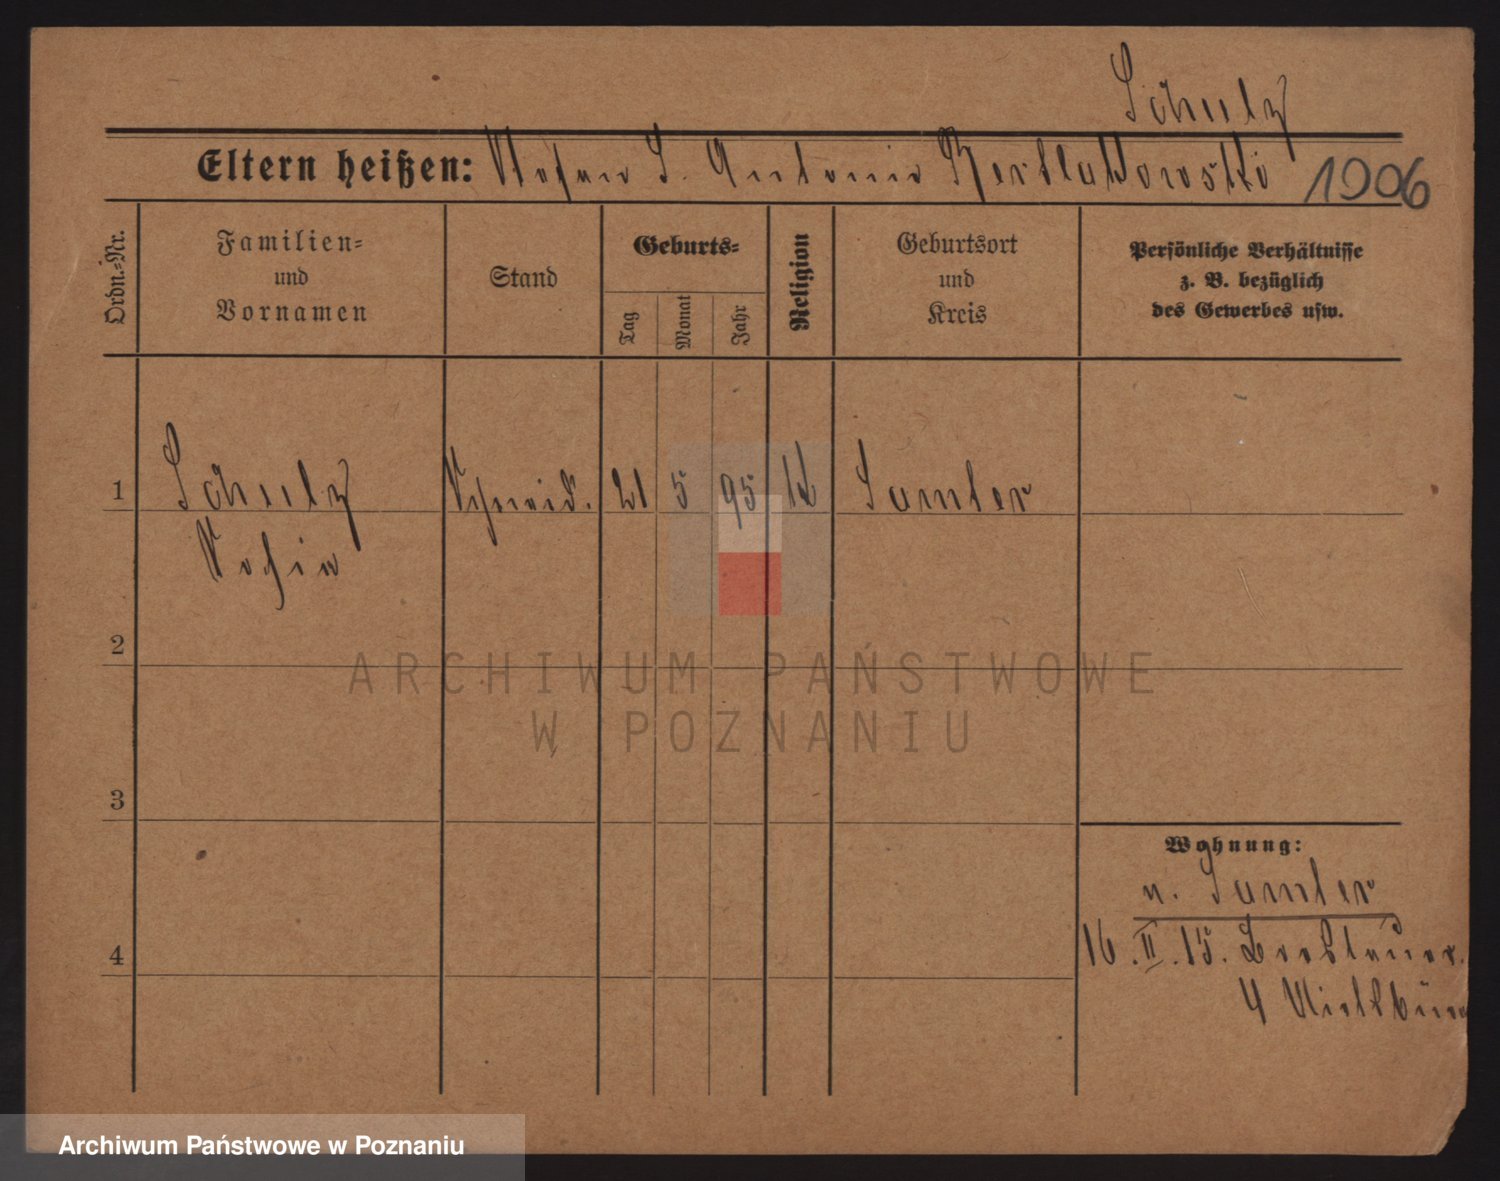 Schulz
Eltern heißen: Stefan S. Antonie 1906
Ordn.-Nr.
Familien-
und
Vornamen
Stand
Geburts-
Tag
Monat
Jahr
Religion
Geburtsort
und
Kreis
Persönliche Verhältnisse
z. B. bezüglich
des Gewerbes usw.
1 Schulz Schneid. 21 5 95 k Samter
Sofia
2
ARCHIWUM PAŃSTWOWE
W POZNANIU
3
Wohnung:
n. Samter
4
16.II.15. Breslauer.
4
Archiwum Państwowe w Poznaniu